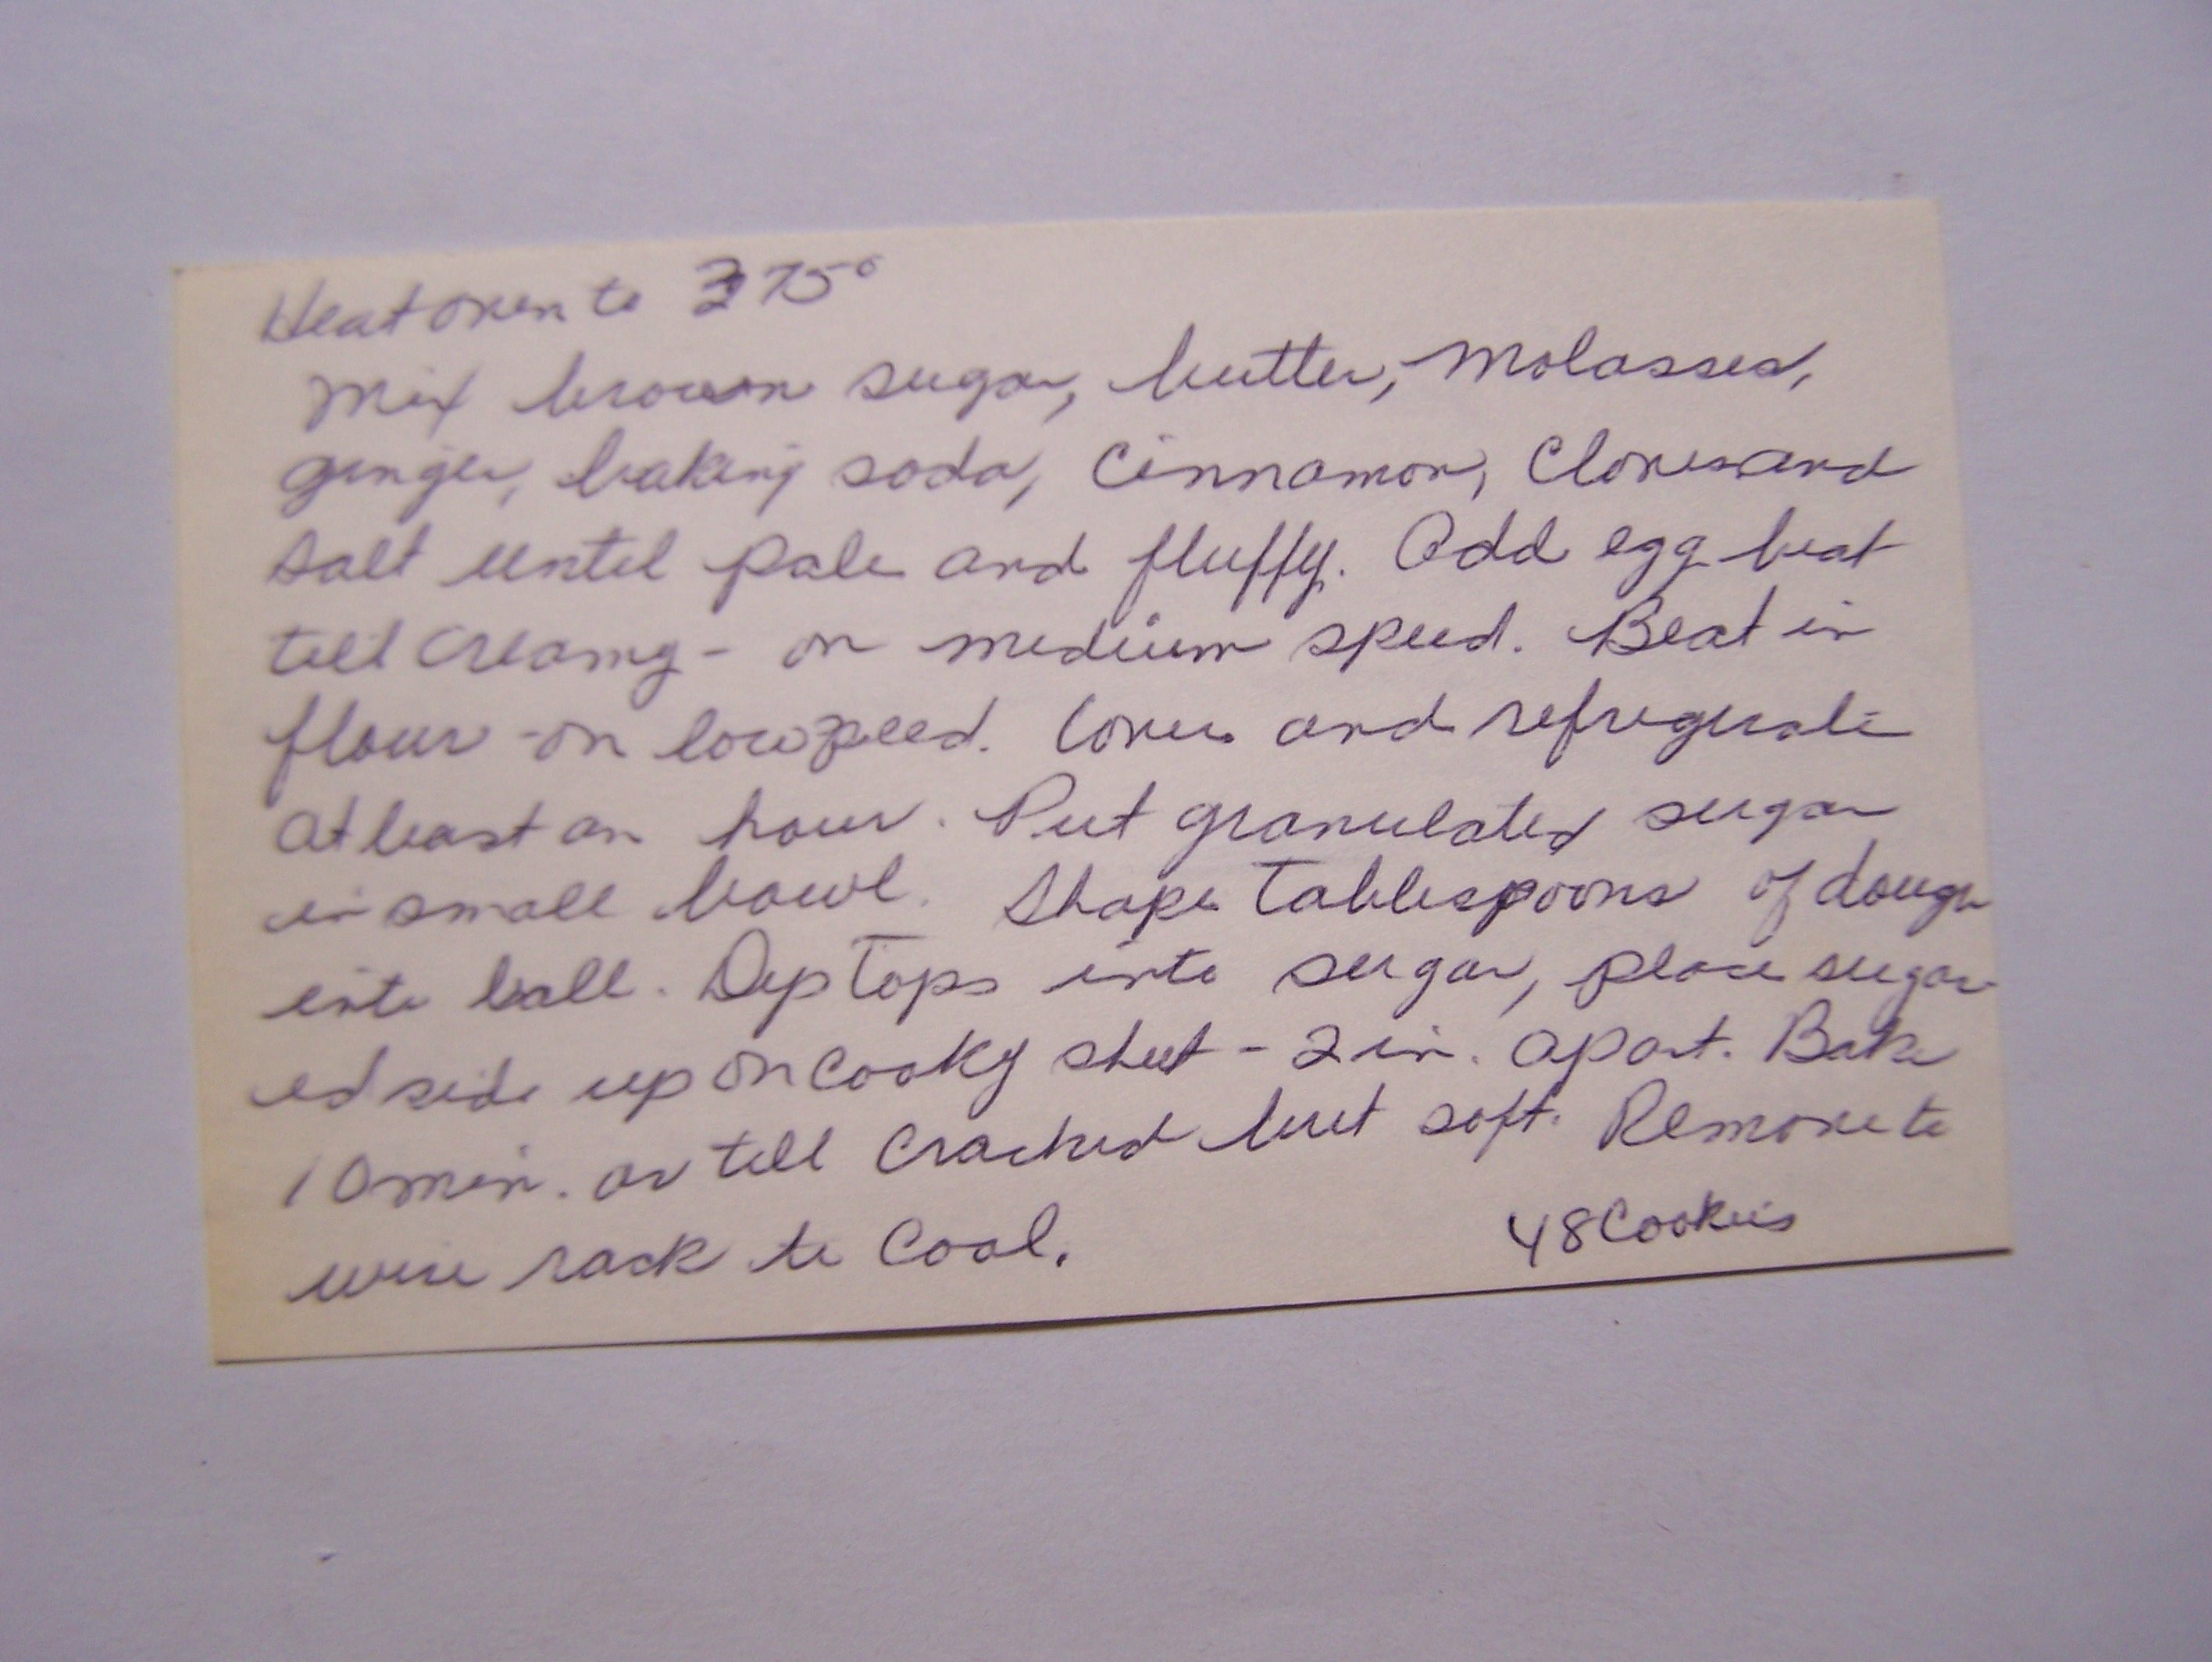 Heat oven to 375°
Mix brown sugar, butter, Molasses,
ginger, baking soda, Cinnamon, Cloves and
salt until pale and fluffy. Add egg beat
till creamy - on medium speed. Beat in
flour - on low speed. Cover and refrigerate
at least an hour. Put granulated sugar
in small bowl. Shape Tablespoons of dough
into ball. Dip Tops into sugar, place sugar
ed side up on Cooky sheet - 2 in. apart. Bake
10 min. or till Cracked but soft. Remove to
wire rack to Cool.
48 Cookies